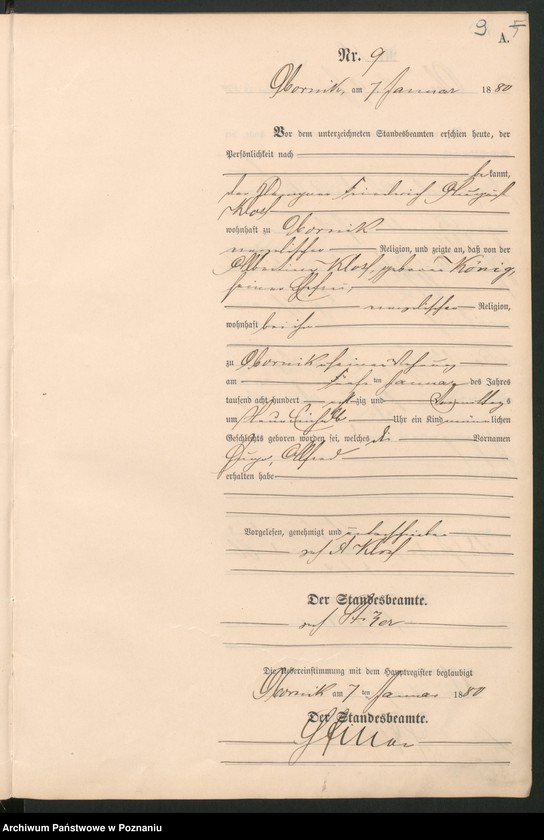 9 5
A.
Nr. 9
Obornik, am 7. Januar 1880
Vor dem unterzeichneten Standesbeamten erschien heute, der
Persönlichkeit nach
bekannt,
der Friedrich August
Klose
wohnhaft zu Obornik
evangelischer Religion, und zeigte an, daß von der
Albertine Klose, geborene König,
seiner Ehefrau,
evangelischer Religion,
wohnhaft bei ihm
zu Obornik in seiner Wohnung
am ten Januar des Jahres
tausend acht hundert achtzig und Vormittags
um Neun ein halb Uhr ein Kind männlichen
Geschlechts geboren worden sei, welches die Vornamen
Hugo, Alfred
erhalten habe
Vorgelesen, genehmigt und unterschrieben
A Klose
Der Standesbeamte.
Die Uebereinstimmung mit dem Hauptregister beglaubigt
Obornik am 7 ten Januar 1880
Der Standesbeamte.
Archiwum Państwowe w Poznaniu